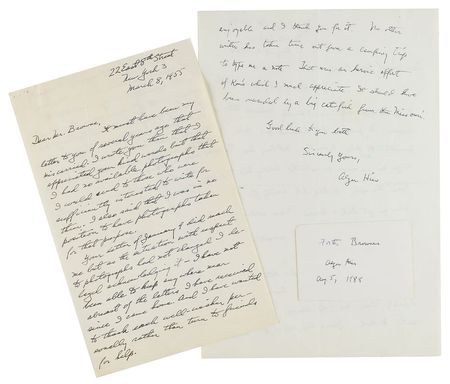 22 East 8th Street
New York 3
March 8, 1955
Dear Mr. Browne,
It must have been my
letter to you of several years ago that
miscarried. I wrote you then that I
appreciated your kind words but that
I had no available photographs that
I could send to those who are
sufficiently interested to write for
them. I also said that I was in no
position to have photographs taken
for that purpose.
Your letter of January 9 did reach
me but as the situation with respect
to photographs had not changed I de-
layed acknowledging it - I have not
been able to keep any where near
abreast of the letters I have received
since I came home. And I have wanted
to thank each well-wisher per
sonally rather than turn to friends
for help.
enjoyable and I thank you for it. No other
writer has taken time out from a camping trip
to type me a note. That was an heroic effort
of which I much appreciate. It should have
been rewarded by a big catfish from the Missouri.
Good luck to you both
Sincerely Yours,
Alger Hiss
Browne
Alger Hiss
Aug 5, 1988